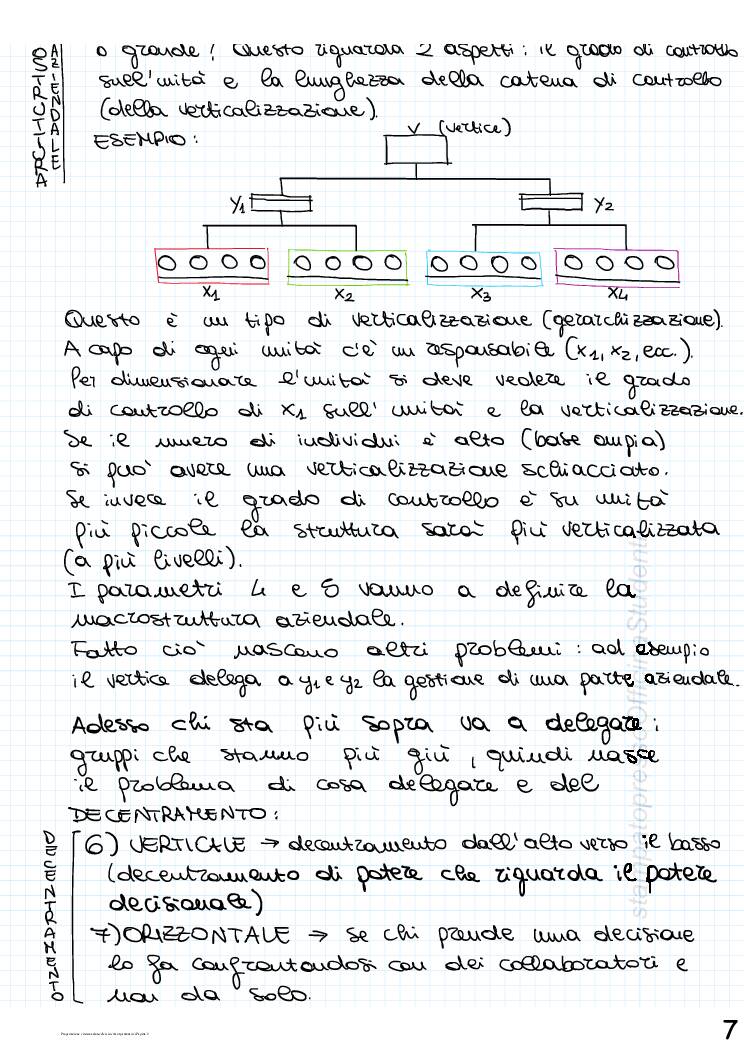 o grande? Questo riguarda 2 aspetti: il grado di controllo
sull'unità e la lunghezza della catena di controllo
(della verticalizzazione).
STRUTTURA
AZIENDALE
ESEMPIO:
V (vertice)
Y1
Y2
X1 X2 X3 X4
Questo è un tipo di verticalizzazione (gerarchizzazione).
A capo di ogni unità c'è un responsabile (x1, x2, ecc.).
Per dimensionare l'unità si deve vedere il grado
di controllo di x1 sull'unità e la verticalizzazione.
Se il numero di individui è alto (base ampia)
si può avere una verticalizzazione schiacciato.
Se invece il grado di controllo è su unità
più piccole la struttura sarà più verticalizzata
(a più livelli).
I parametri 4 e 5 vanno a definire la
macrostruttura aziendale.
Fatto ciò nascono altri problemi: ad esempio
il vertice delega a y1 e y2 la gestione di una parte aziendale.
Adesso chi sta più sopra va a delegare i
gruppi che stanno più giù, quindi nasce
il problema di cosa delegare e del
DECENTRAMENTO:
DECENTRAMENTO
6) VERTICALE → decentramento dall'alto verso il basso
(decentramento di potere che riguarda il potere
decisionale)
7) ORIZZONTALE → se chi prende una decisione
lo fa confrontandosi con dei collaboratori e
non da solo.
7